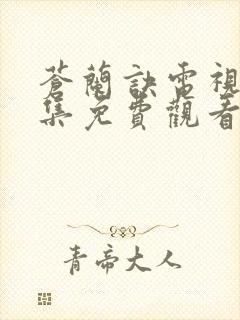 蒼蘭訣電視
集免費觀看
青帝大人